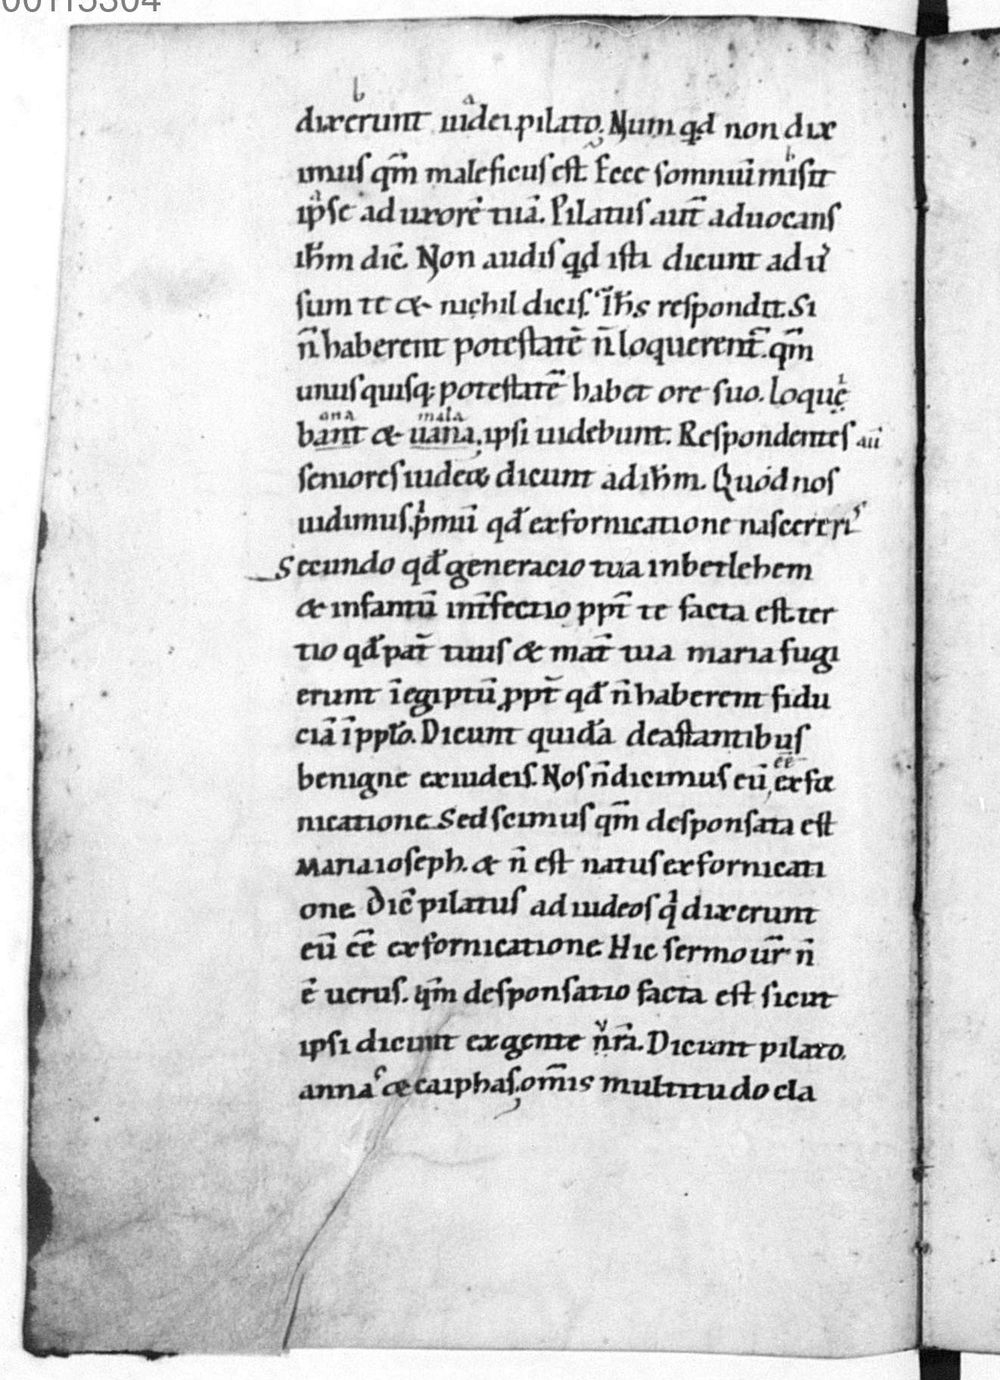 00115304
dixerunt iudei pilato. Num qd non dix
imus qm̄ maleficus est. Ecce somnıū misit
ipse ad uxorē tuā. Pilatus aut̄ aduocans
ih̄m dic̄. Non audis qd isti dicunt adu̓
sum te & nichil dicis. Ih̄s respondit. Si
n̄ haberent potestatē n̄ loquerent̄. qm̄
unusquisq; potestatē habet ore suo. loque
ona mala
bant & uana, ipsi uidebunt. Respondentes aū
seniores iudeoꝝ dicunt ad ih̄m. Quod nos
uidimus. p̓mū qđ ex fornicatione
Secundo qđ generacio tua in betlehem
& infantū int̄fectio ppt̄ te facta est. ter
tio qđ pat̄ tuus & mat̄ tua maria fugi
erunt ī egiptū ppt̄ qđ n̄ haberent fidu
ciā ī pplo. Dicunt quidā de astantibus
ēē
benigne ex iudeis. Nos n̄ dicimus eū, ex for
nicatione. Sed scimus qm̄ desponsata est
Maria ioseph. & n̄ est natus ex fornicati
one. Dic̄ pilatus ad iudeos q̓ dixerunt
eū ēē ex fornicatione. Hic sermo ur̄ n̄
ē uerus. qm̄ desponsatio facta est sicut
ipsi dicunt ex gente nr̄a. Dicunt pilato.
annas & caiphas, om̄is multitudo cla